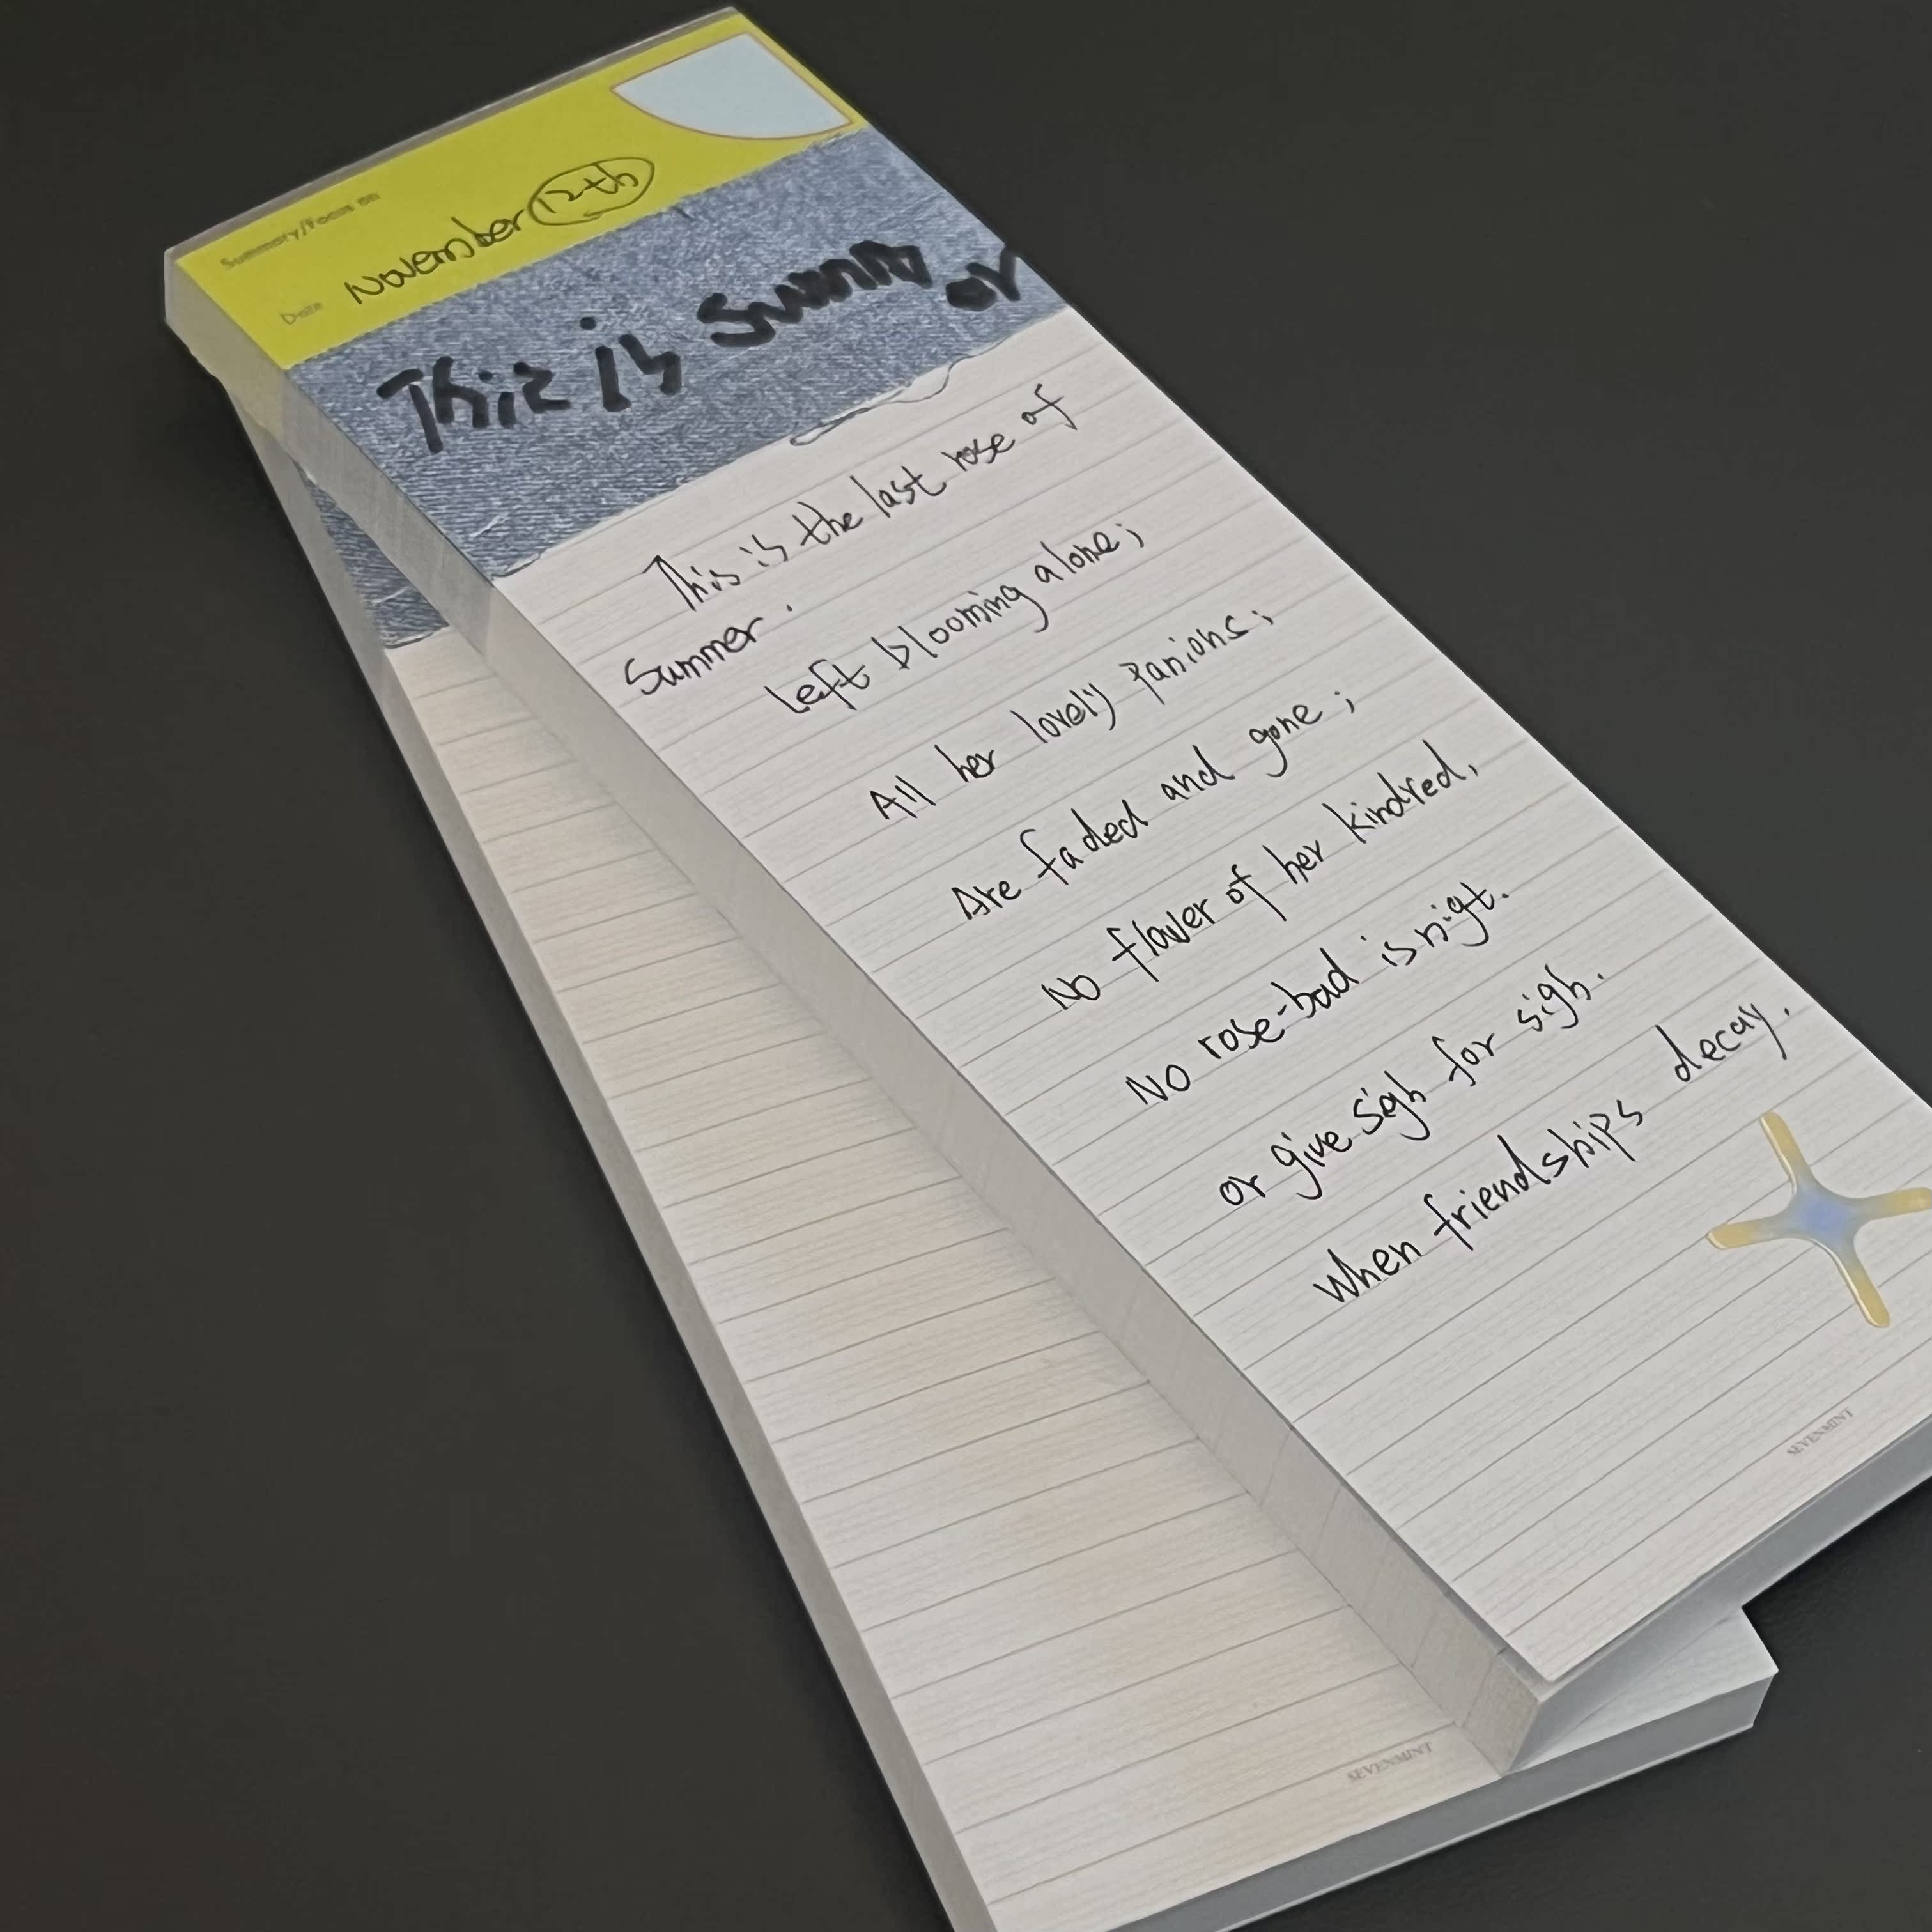 Summary/Focus on
Date November 12th
This is Summer
This is the last rose of
Summer.
Left blooming alone;
All her lovely panions;
Are faded and gone;
No flower of her kindred,
No rose-bad is nigt.
or give sigh for sigh.
When friendships decay.
SEVENMINT
SEVENMINT